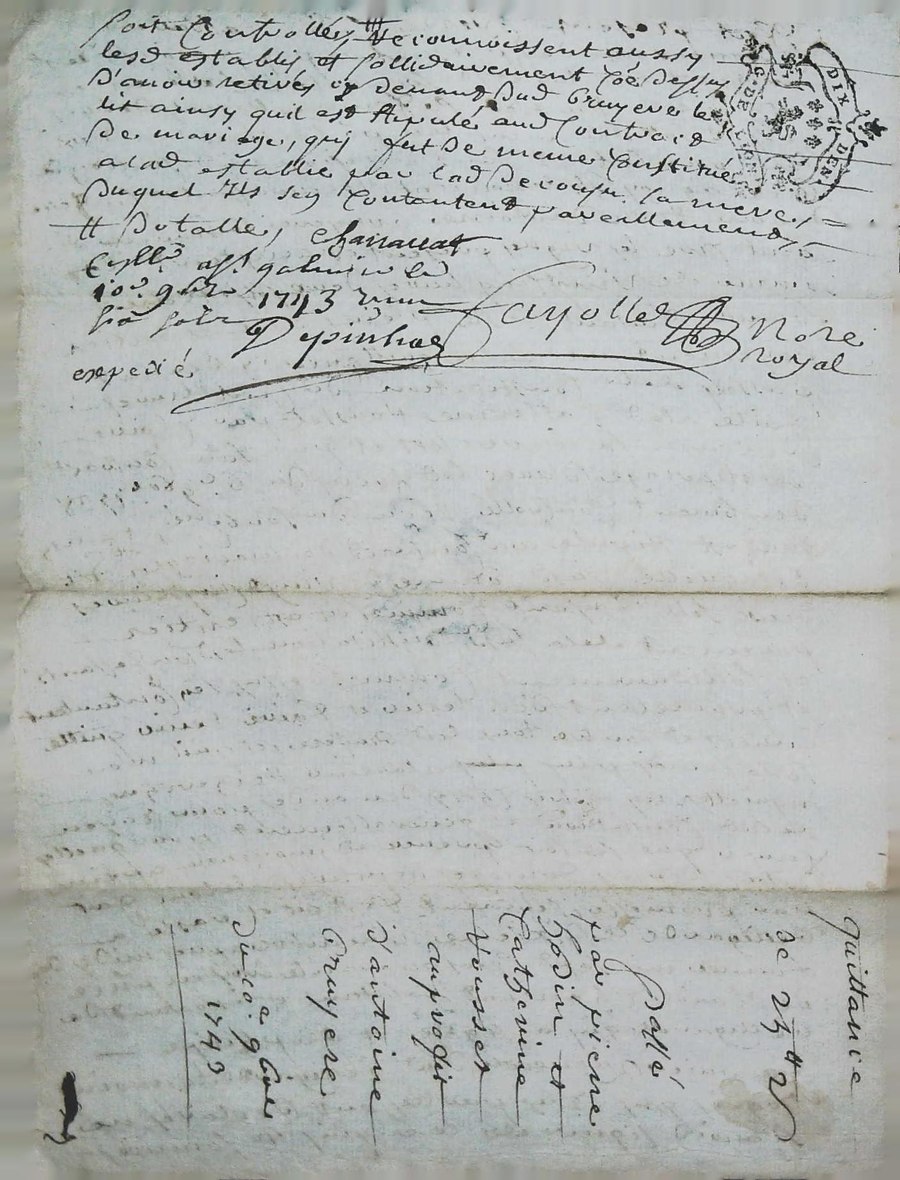 soit Controllé, Reconnoissent aussy
lesd establis et sollidairement Coē dessus
D'avoir retirés cy devant dud Bruyere le
lit ainsy quil est stipulé aud Contract
de mariage, qui fut de meme Constitué
alad establie par lad Decousu sa mere,
Duquel Ils sen Contentent pareillement,
Dotalle,
1743
Fayolles Nore
royal
expedié
DIX DENI
quittance
de 25tt 2s
Passé
par piere
bodin et
Catherine
Rousset
au profit
d'antoine
Bruyere
du 10e 9bre
1743